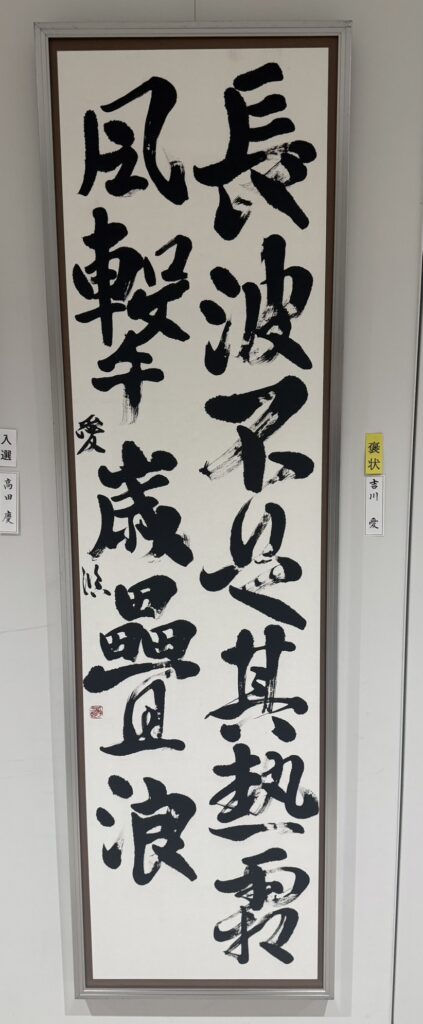 長波不其熱
風撃歳疊浪
愛臨
褒状
吉川 愛
入選
高田 慶